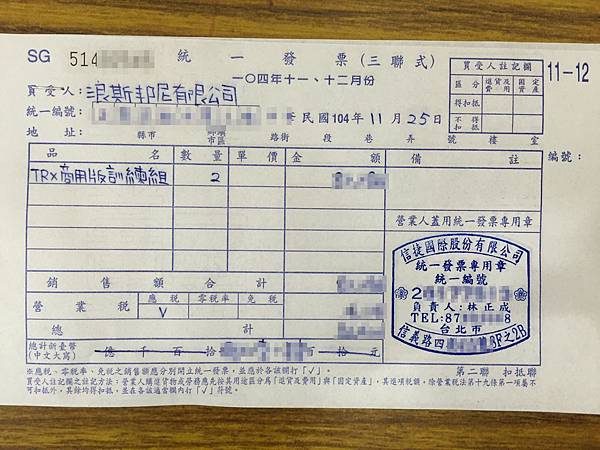 SG 514
統一發票(三聯式)
一〇四年十一、十二月份
11-12
買受人註記欄
區分 進貨及費用 固定資產
得扣抵
不得扣抵
買受人:浪斯邦尼有限公司
統一編號:
中華民國104年11月25日
地址: 縣市 鄉鎮市區 路街 段 巷 弄 號 樓 室
編號:
品名 數量 單價 金額 備註
TRX商用版訓練組 2
營業人蓋用統一發票專用章
銷售額合計
營業稅 應稅 零稅率 免稅
V
總計
總計新臺幣
(中文大寫) 億 千 百 拾 百 十 元
信捷國際股份有限公司
統一發票專用章
統一編號
2
負責人:林正成
TEL:87 8
台北市
信義路四 8F之2B
※應稅、零稅率、免稅之銷售額應分別開立統一發票,並應於各該欄打「√」。
第二聯 扣抵聯
買受人註記欄之註記方法:營業人購進貨物或勞務應先按其用途區分為「進貨及費用」與「固定資產」,其進項稅額,除營業稅法第十九條第一項屬不
可扣抵外,其餘均得扣抵,並在各該適當欄內打「√」符號。